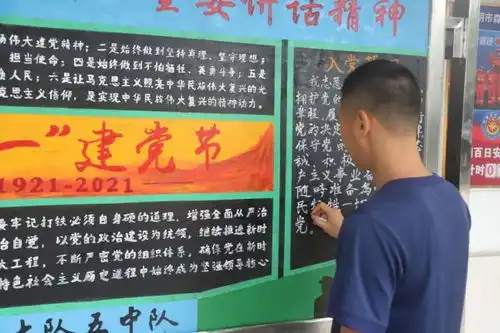 重要讲话精神
伟大建党精神；二是始终做到坚持真理、坚守理想；
担当使命；四是始终做到不怕牺牲、英勇斗争；五是
人民；六是让马克思主义照亮中华民族伟大复兴的光
克思主义信仰，是实现中华民族伟大复兴的精神动力。
一”建党节
1921-2021
要牢记打铁必须自身硬的道理，增强全面从严治
治自觉，以党的政治建设为统领，继续推进新时
大工程，不断严密党的组织体系，确保党在新时
特色社会主义历史进程中始终成为坚强领导核心
大队五中队
入党
我志愿
拥护党的
章程，履
党的决
保守党
积
产主义事业
随时准备
民
党
百日安
计时